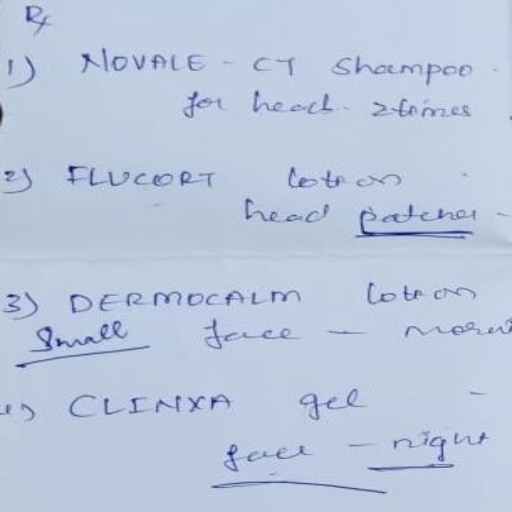 Rx
1) NOVALE - CT Shampoo.
for head. 2 times
2) FLUCORT lotion
head patches -
3) DERMOCALM lotion
Small face -
4) CLINXA gel -
face - night